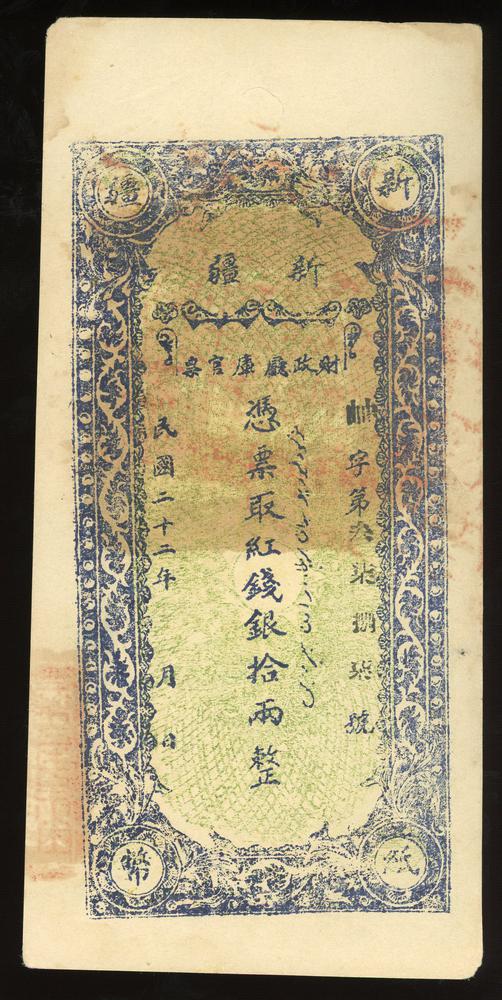 新疆
紙幣
新疆
財政廳庫官票
字第叁柒捌柒號
憑票取紅錢銀拾兩整
民國二十二年 月 日